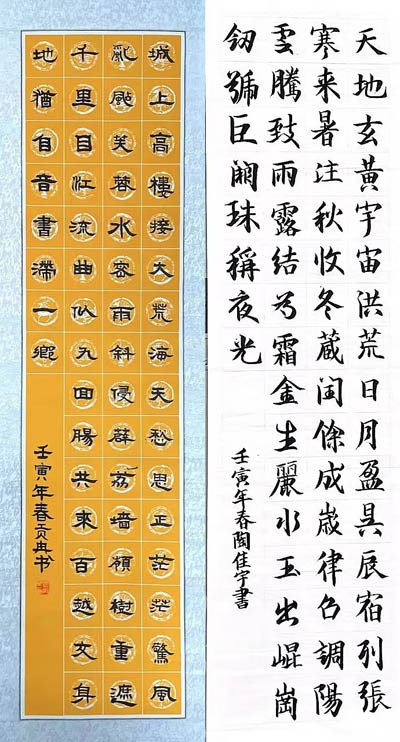 天地玄黃宇宙洪荒日月盈昃辰宿列張
寒来暑往秋收冬蔵閏馀成歲律吕調陽
雲騰致雨露結为霜金生麗水玉出崐崗
剑號巨闕珠稱夜光
壬寅年春佳宇書
城上高樓接大荒海天愁思正茫茫驚風
亂颭芙蓉水密雨斜侵薜荔墻嶺樹重遮
千里目江流曲似九回腸共來百越文身
地猶自音書滯一鄉
壬寅年春贡冉书